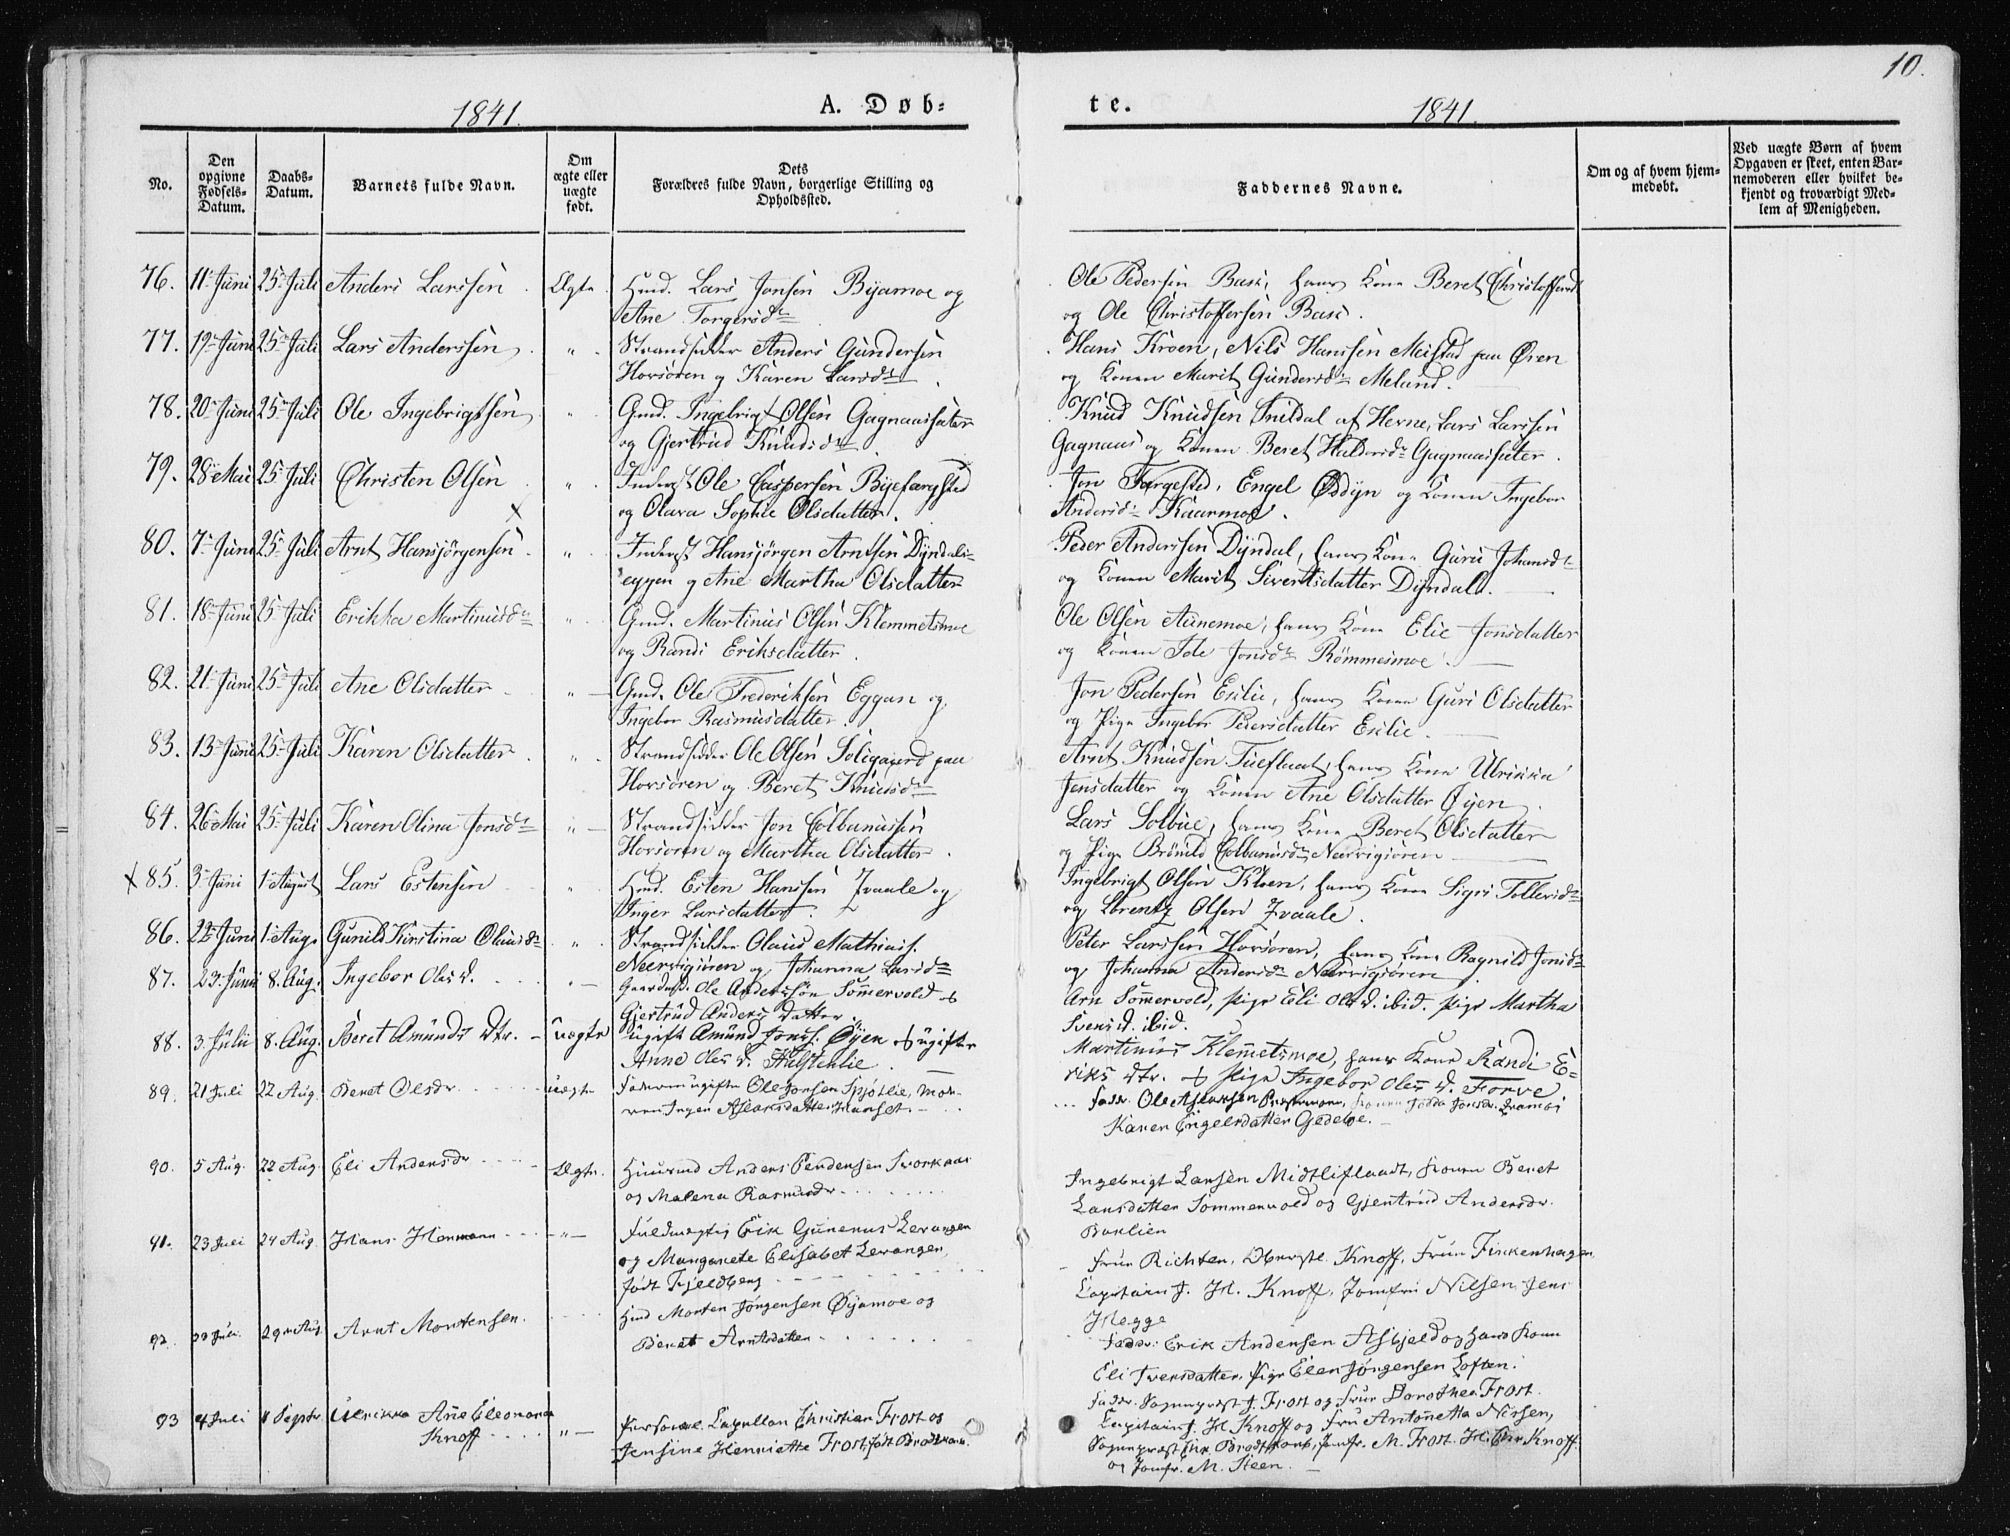 10.
1841. A. Døb=
te. 1841.
No.
Den opgivne Fødsels-Datum.
Daabs-Datum.
Barnets fulde Navn.
Om ægte eller uægte født.
Dets Forældres fulde Navn, borgerlige Stilling og Opholdssted.
Faddernes Navne.
Om og af hvem hjemmedøbt.
Ved uægte Børn af hvem Opgaven er skeet, enten Barnemoderen eller hvilket bekjendt og troværdigt Medlem af Menigheden.
76. 11 Juni 25 Juli Anders Larssen Ægte Huusmd. Lars Jonsen Byamoe og
Ane Torgersdr
Ole Pedersen Bas, hans Kone Beret Christoffersd
og Ole Christoffersen Bas.
77. 19 Juni 25 Juli Lars Anderssen " Strandsidder Anders Gundersen
Horsøren og Karen Larsdr
Hans Kroen, Nils Hanssen Meistad paa Øren
og Konen Marit Gundersdr Melund.
78. 20 Juni 25 Juli Ole Ingebrigtsen " Gmd. Ingebrigt Olsen Gagnaassæter
og Gjertrud Knudsdr
Knud Knudsen Snildal af Herne, Lars Larssen
Gagnaas og Konen Beret Haldorsdr Gagnaassæter.
79. 28 Mai 25 Juli Christen Olsen " Inderst Ole Caspersen Byefargsted
og Olava Sophie Olsdatter.
Jon Fargested, Engel Øsdyn og Konen Ingebor
Andersdr Kaarmoe.
80. 7 Juni 25 Juli Arnt Hansjørgensen " Inderst Hansjørgen Arntsen Dyndals-
eggen og Ane Martha Olsdatter
Peder Anderssen Dyndal, hans Kone Guru Johansdr
og Konen Marit Sivertsdatter Dyndal.
81. 18 Juni 25 Juli Erikka Martinusdr " Gmd. Martinus Olsen Klemmetsmoe
og Randi Eriksdatter.
Ole Olsen Aunemoe, hans Kone Elie Jonsdatter
og Konen Jonsdr Rømmesmoe.
82. 21 Juni 25 Juli Ane Olsdatter " Gmd. Ole Frederiksen Eggan og
Ingebor Rasmusdatter.
Jon Pedersen Eslie, hans Kone Guri Olsdatter
og Pige Ingebor Pedersdatter Eslie.
83. 13 Juni 25 Juli Karen Olsdatter " Strandsidder Ole Olsen Soligaard paa
Horsøren og Beret Knudsdr
Arnt Knudsen Tueflaat, hans Kone Ulrikka
Jensdatter og Konen Ane Olsdatter Øyen.
84. 26 Mai 25 Juli Karen Olina Jonsdr " Strandsidder Jon Colbanussen
Horsøren og Martha Olsdatter.
Lars Solbue, hans Kone Beret Olsdatter
og Pige Brønild Colbanusdr Nærvigsøren
85. 3 Juni 1 August Lars Estensen " Huusmd. Esten Hanssen Kvaale og
Inger Larsdatter.
Ingebrigt Olsen Kloen, hans Kone Sigri Tollevsdr
og Lorentz Olsen Kvaale.
86. 22 Juni 1 Aug. Gunild Kirstina Olausdr " Strandsidder Olaus Mathias.
Nærvigsøren og Johanna Larsdr
Peter Larssen Horsøren, hans Kone Ragnild Jonsdr
og Johanna Andersdr Nærvigsøren
87. 23. Juni 8. Aug. Ingebor Olesd. " Gaardmd. Ole Anderssøn Sommervold &
Gjertrud Anders Datter.
Arn Sommervold, Pige Eli Olesd. ibid. Pige Martha
Svensd. ibid.
88. 3 Julii 8. Aug. Beret Amunds Dtr. uægte Ugift Amund Jons. Øyen & ugifte
Anne Oles D. Halstenlie.
Martinus Klemmetsmoe, hans Kone Randi E-
riks dtr. & Pige Ingebor Oles D. Forve
89. 21 Juli 22 Aug. Beret Olsdr uægte Faderen ugifte Ole Jonsen Spjøtlie, Mo-
ren Ingen Aslaksdatter Hanset.
Faddr. Ole Aslaksen Konen Jonsdr. Kvamøi
Karen Engelsdatter Gedeboe.
90. 5 Aug. 22 Aug. Eli Andersdr Ægte Huusmd Anders Pedersen Svorkaas
og Malena Rasmusdr.
Ingebrigt Larsen Midtliflaadt, Konen Beret
Larsdatter Sommervold og Gjertrud Andersdr.
Baklien
91. 23 Juli 24 Aug. Hans Hermann " Fuldmægtig Erik Gunerus Levangen
og Margarete Elisabet Levangen,
født Fjeldberg
Frue Richter, Oberstl. Knoff, Frue Finkenhagen,
Capitain J. H. Knoff, Jomfru Nilsen, Jens
Hegge
92. Juli 29 Aug Arnt Mortensen. Huusmd Morten Jørgensen Øyamoe og
Beret Arntsdatter
Faddr: Erik Andersen Asbjeld og hans Konn
Eli Iversdatter, Pige Elen Jørgensen Loften.
93 4 Juli 11 Septbr. Ulrikka Ane Eleonora
Knoff " Personel Capellan Christian Frost og
Jensine Henriette Frost, født Brodtkorb.
Faddr. Sognepræst J. Frost og Frue Dorothea Frost.
Capitain J. H Knoff og Fru Antonetta Nissen,
Sognepræst Brodtkorb, Jomfr. M. Frost, Hr. Knoff
og Jomfr. M. Steen.